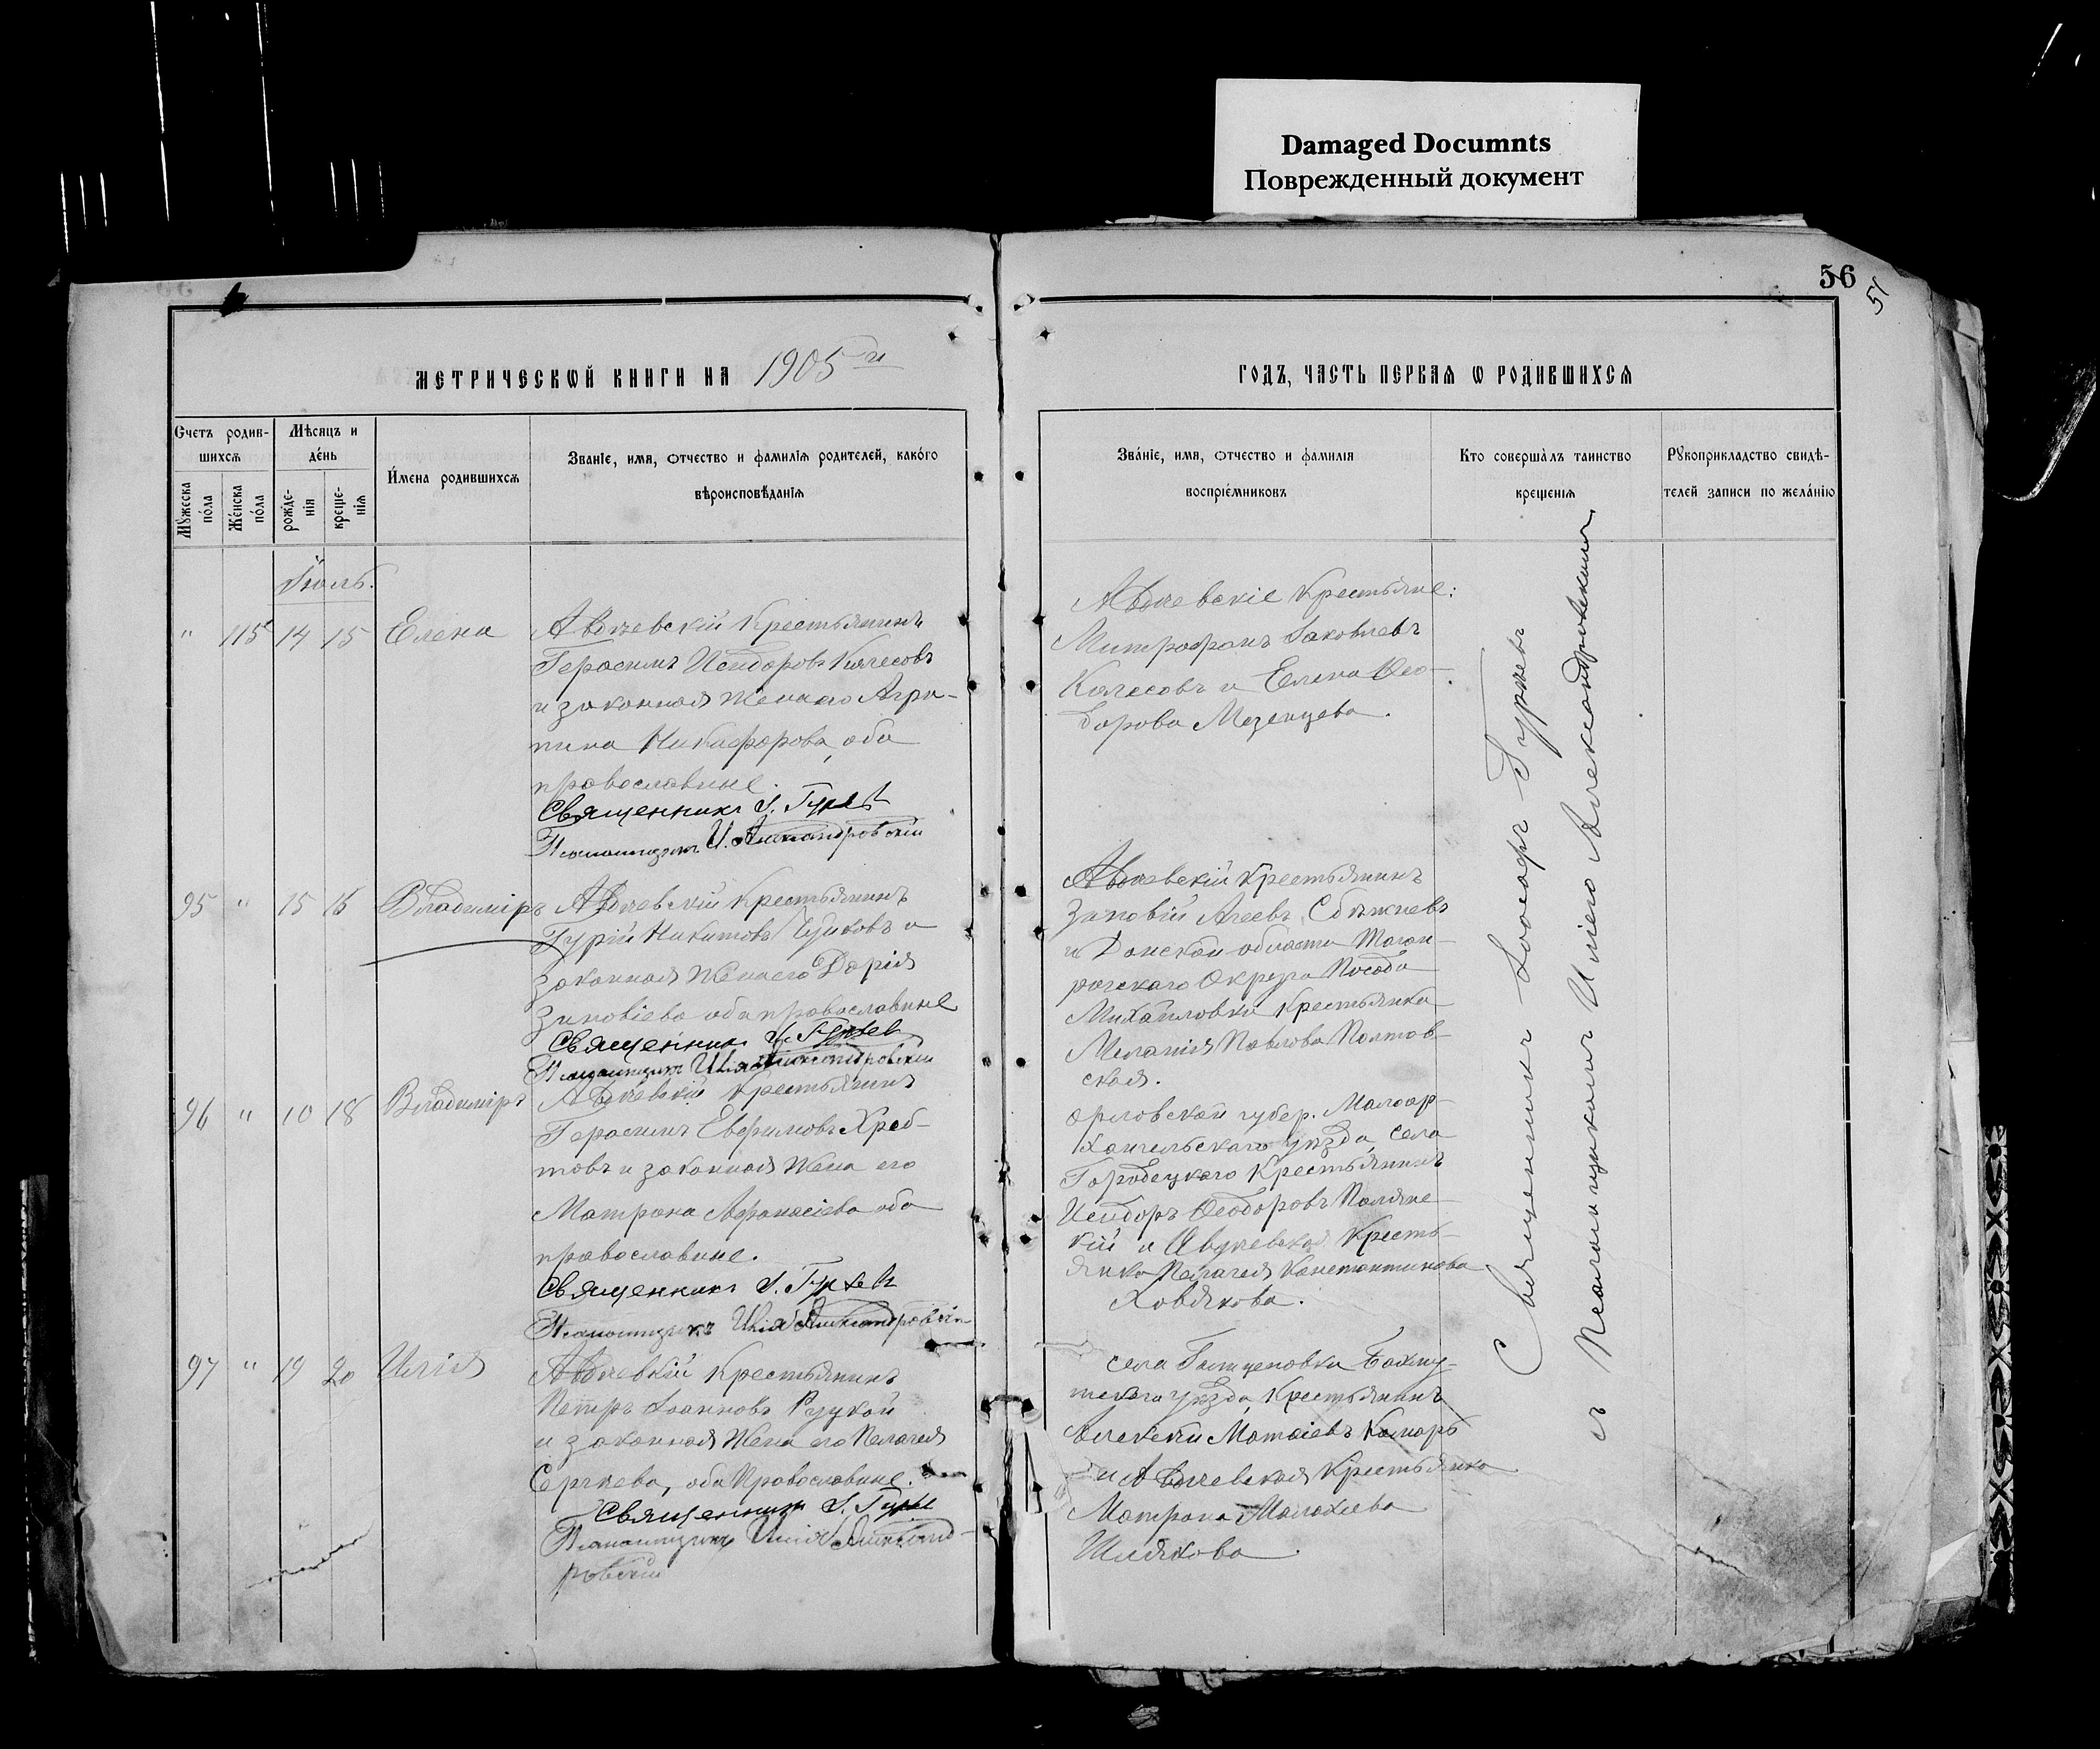 Damaged Documnts
Поврежденный документ
56
МЕТРИЧЕСКОЙ КНИГИ НА 1905 й
ГОДЪ, ЧАСТЬ ПЕРВАЯ Ѡ РОДИВШИХСЯ
Счетъ родив-
шихся
Мѣсяцъ и
день
Имена родившихся
Званіе, имя, отчество и фамилія родителей, какого
вѣроисповѣданія
Мужеска пола
Женска пола
рожде-
нія
креще-
нія
Званіе, имя, отчество и фамилія
воспріемниковъ
Кто совершалъ таинство
крещенія
Рукоприкладство свидѣ-
телей записи по желанію
Іюль.
" 115 14 15 Елена
Авдѣевскій крестьянинъ
Герасимъ Исидоровъ Колесовъ
и законная жена его Агри-
пина Никифорова, оба
православные.
Священникъ І. Гуржевъ
Псаломщикъ И. Александровскій
Авдѣевскіе крестьяне:
Митрофанъ Іаковлевъ
Колесовъ и Елена Ѳео-
дорова Мезенцева.
95 " 15 16 Владиміръ
Авдѣевскій крестьянинъ
Гурій Никитовъ и
законная жена его Дарія
Зиновіева оба православные
Священникъ І. Гуржевъ
Псаломщикъ Илія Александровскій
Авдѣевскій крестьянинъ
Зиновій Агеевъ
и Донской области Таган-
рогскаго Округа Посада
Михайловки крестьянка
Меланія Павлова Полтов-
ская.
96 " 10 18 Владиміръ
Авдѣевскій крестьянинъ
Герасимъ Евфимовъ Хреб-
товъ и законная жена его
Матрона Афанасіева оба
православные.
Священникъ І. Гуржевъ
Псаломщикъ Илія Александровскій
Орловской губер. Малоар-
хангельскаго уѣзда, села
Городецкаго крестьянинъ
Исидоръ Ѳеодоровъ
и Авдѣевская кресть-
янка Пелагея Константинова
Ховякова.
97 " 19 20 Илія
Авдѣевскій крестьянинъ
Петръ Іоанновъ Руцкой
и законная жена его Пелагея
Сергѣева, оба Православные.
Священникъ І. Гуржевъ
Псаломщикъ Илія Александ-
ровскій
села Бахму-
тскаго уѣзда, крестьянинъ
Алексѣй Матѳіевъ Комаръ
и Авдѣевская крестьянка
Матрона Малахіева
Шляхова.
Священникъ Іосифъ Гуржевъ
съ Псаломщикомъ Иліею Александровскимъ